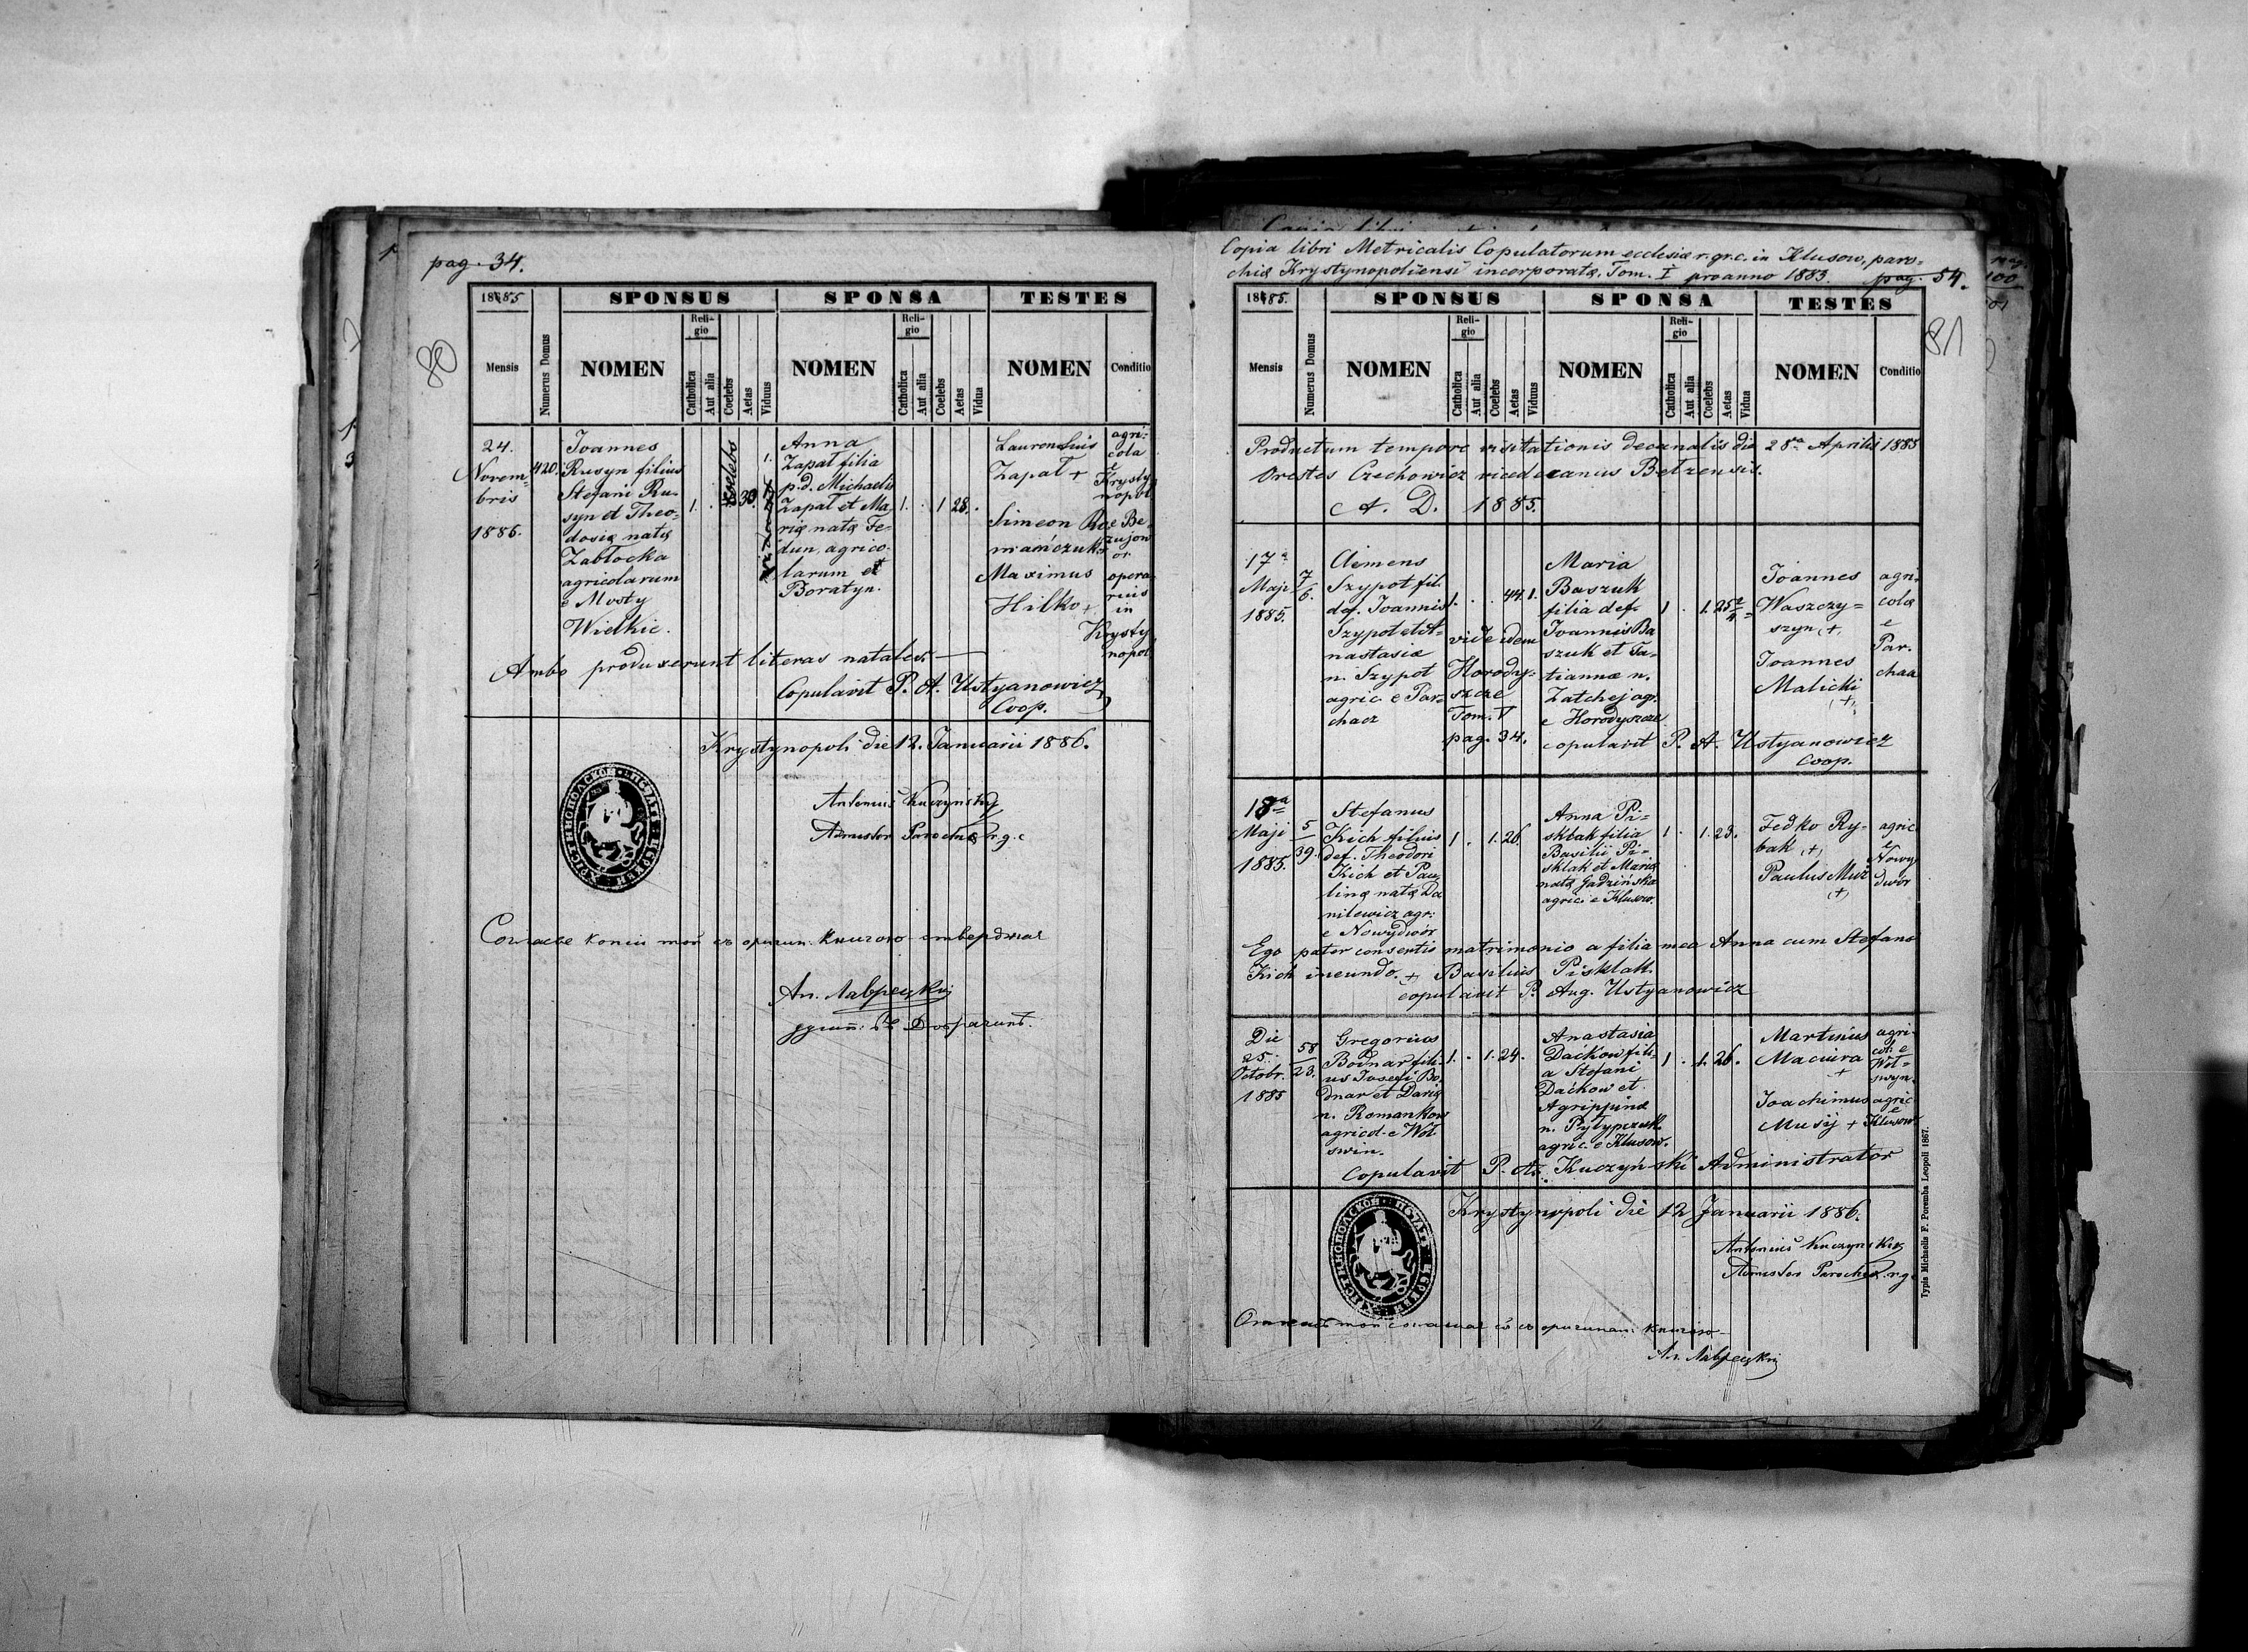 pag. 34.
80
1885
SPONSUS
SPONSA
TESTES
Mensis
Numerus Domus
NOMEN
Religio
Catholica
Aut alia
Coelebs
Aetas
Viduus
NOMEN
Religio
Catholica
Aut alia
Coelebs
Aetas
Vidua
NOMEN
Conditio
24.
Novem=
bris
1886.
420.
Joannes
Rusyn filius
Stefani Ru-
syn et Theo=
dosiæ natæ
Zabłocka
agricolarum
e Mosty
Wielkie.
1.
coelebs
30.
1.
Anna
Zapał filia
p.d. Michaelis
Zapał et Ma
riæ natæ Fe-
dun, agrico-
larum et
Boratyn.
1. . 1 28.
Laurentius
Zapał +
Simeon Ro
mańczuk
Maximus
Hilko +
agri=
cola
e
Krysty
nopol
e Be-
zujow
or.
opera
rius
in
Krysty
nopol
Ambo produxerunt literas natales. —
Copulavit P. A. Ustyanowicz
Coop.
Krystynopoli die 12. Januarii 1886.
Antonius Kuczyńskyj
Admstor Parochiæ r.g.c
Согласіе копіи той съ оригин. книгою стверджаю
Ан. Лаврецкій
Copia libri Metricalis Copulatorum ecclesiæ r.gr.c. in Klusow, paro=
chiæ Krystynopoliensi incorporatæ, Tom. I pro anno 1883. pag. 54.
81
1885.
SPONSUS
SPONSA
TESTES
Mensis
Numerus Domus
NOMEN
Religio
Catholica
Aut alia
Coelebs
Aetas
Viduus
NOMEN
Religio
Catholica
Aut alia
Coelebs
Aetas
Vidua
NOMEN
Conditio
Productum tempore visitationis decanalis die 28va Aprilis 1885
Orestes Czechowicz vicedecanus Belzensis.
A. D. 1885.
17a
Maji
1885.
7
6.
Clemens
Szypot fil.
def. Joannis
Szypot et A-
nastasiæ
n. Szypot
agric. e Par-
chacz
1. . . 44. 1.
vide idem
Horody=
szcze
Tom. V
pag. 34.
Maria
Baszuk
filia def.
Joannis Ba
szuk et Ta-
tiannæ n.
Zatchej agr.
e Horodyszcze
1 . 1. 25 2/4 =
Joannes
Waszczy=
szyn (+)
Joannes
Malicki
(+)
agri.
colæ
e
Par.
chacz
copulavit P. A. Ustyanowicz
Coop.
18va
Maji
1885.
5
39.
Stefanus
Kich filius
def. Theodori
Kich et Pau-
linæ natæ Da
nilewicz agr:
e Nowydwór
1 . 1. 26.
Anna Pi-
sklak filia
Basilii Pi-
sklak et Mariæ
natæ Gadzińska
agric. e Klusow.
1 . 1. 23.
Fedko Ry-
bak (+)
Paulus Muż
(+)
agric
e
Nowy
dwór
Ego pater consentio matrimonio a filia mea Anna cum Stefano
Kich ineundo. + Basilius Pisklak.
copulavit P. Aug. Ustyanowicz
Die
25.
Octobr.
1885
58
23.
Gregorius
Bodnar fili-
us Josefi Bo.
dnar et Dariæ
n. Romankow
agricol. e Woł
swin.
1. . 1. 24.
Anastasia
Daćkow fili-
a Stefani
Daćkow et
Agrippinæ
n. Pyłypczuk.
agric. e Klusow.
1 . 1. 26.
Martinus
Maciura
+
Joachimus
Musij +
agri-
col. e
Woł=
swyn.
agric
e
Klusow
Copulavit P. An. Kuczyński Administrator
Krystynopoli die 12 Januarii 1886.
Antonius Kuczynskyj
Admstor Parochiæ r.g.
съ оригинал. книгою
Ан. Лаврецкій
Typis Michaelis F. Poremba Leopoli 1867.